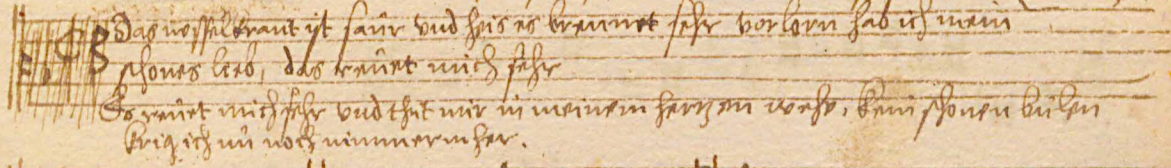 Das nesselkraut ist saur und heis es brennet sehr vorlorn hab ich mein
schones lieb, das reuet mich sehr
Es reuet mich sehr und thut mir in meinem hertzen wehe, kein schonen bulen
krig ich nu noch nimmermher.